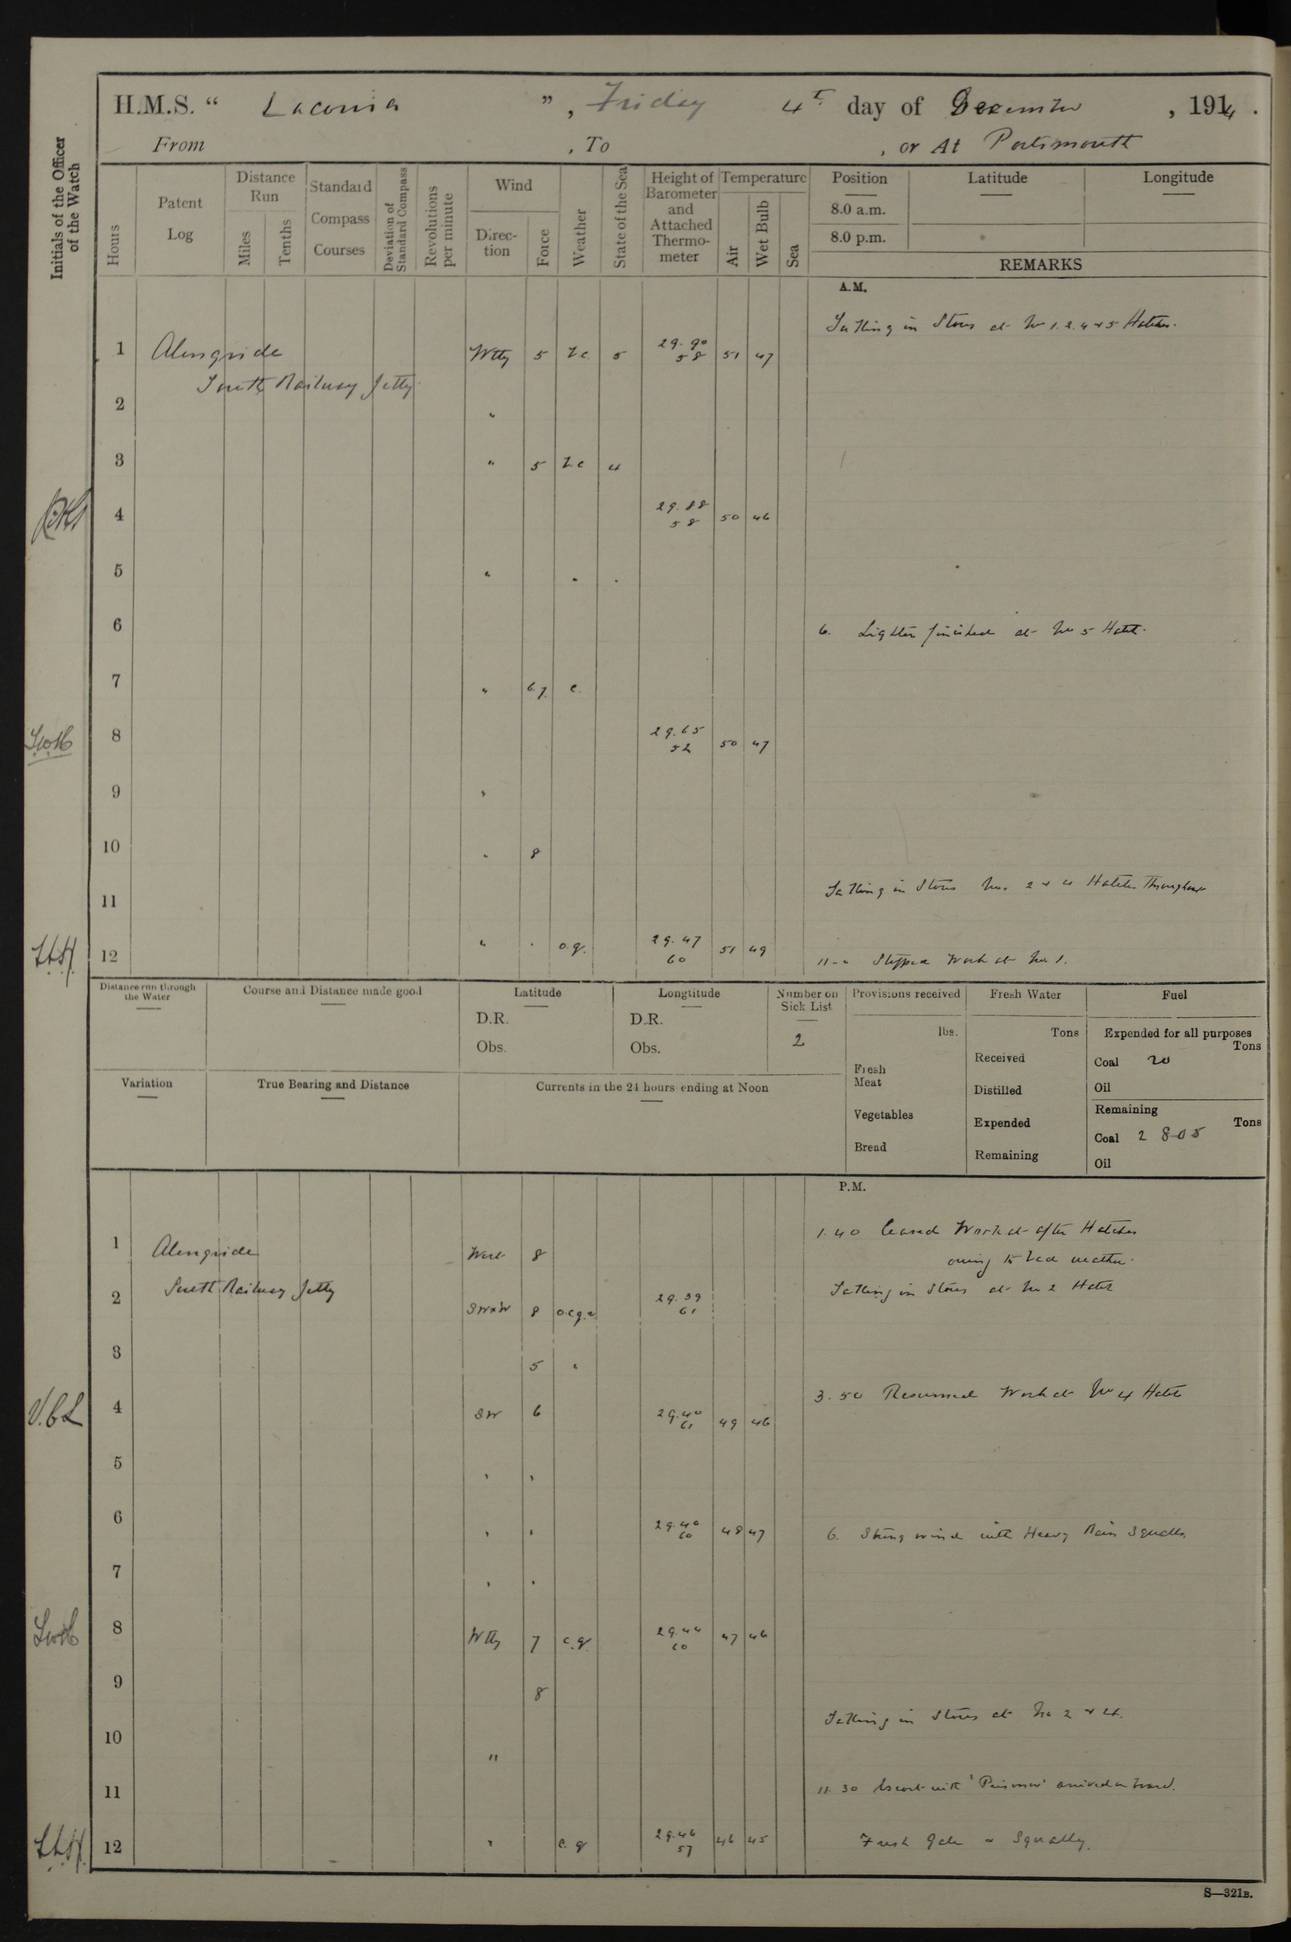 H.M.S. “ Laconia ” , Friday 4th day of December , 1914 .
From , To , or At Portsmouth
Initials of the Officer of the Watch
Hours
Patent Log
Distance Run
Miles
Tenths
Standard Compass Courses
Deviation of Standard Compass
Revolutions per minute
Wind
Direction
Force
Weather
State of the Sea
Height of Barometer and Attached Thermometer
Temperature
Air
Wet Bulb
Sea
Position Latitude Longitude
8.0 a.m.
8.0 p.m.
REMARKS
A.M.
Taking in Stores at No 1. 2. 4 & 5 Hatches.
1 Alongside Wtly 5 5 29.90 58 51 47
South Railway Jetty
2 "
3 " 5 4
4 29.88 58 50 46
5 "
6 6. Lighter finished at No 5 Hatch.
7 " 6.7. c.
8 29.65 52 50 47
9 "
10 " 8
Taking in Stores No. 2 & 4 Hatches Throughout
11
12 " . o.q. 29.47 60 51 49 Stopped Work at No 1.
Distance run through the Water
Course and Distance made good
Latitude
D.R.
Obs.
Longtitude
D.R.
Obs.
Number on Sick List
2
Provisions received
lbs.
Fresh Meat
Vegetables
Bread
Fresh Water
Tons
Received
Distilled
Expended
Remaining
Fuel
Expended for all purposes
Tons
Coal 20
Oil
Remaining
Tons
Coal 2805
Oil
Variation
True Bearing and Distance
Currents in the 24 hours ending at Noon
P.M.
1.40 Ceased Work at after Hatches
owing to bad weather.
1 Alongside West 8
South Railway Jetty
Taking in Stores at No 2 Hatch
2 SWxW 8 29.39 61
3 5 "
4 SW 6 29.40 61 49 46 3.50 Resumed Work at No 4 Hatch
V.C.L
5 " "
6 " " 29.40 60 48 47 6. Strong wind with Heavy Rain Squalls
7 " "
8 Wtly 7 c.q. 29.44 60 47 46
9 8
Taking in Stores at No 2 & 4.
10 "
11 11.30 Escort with 'Prisoner' arrived on board.
12 " c.q 29.46 57 46 45 Fresh Gale & Squally.
S—321B.